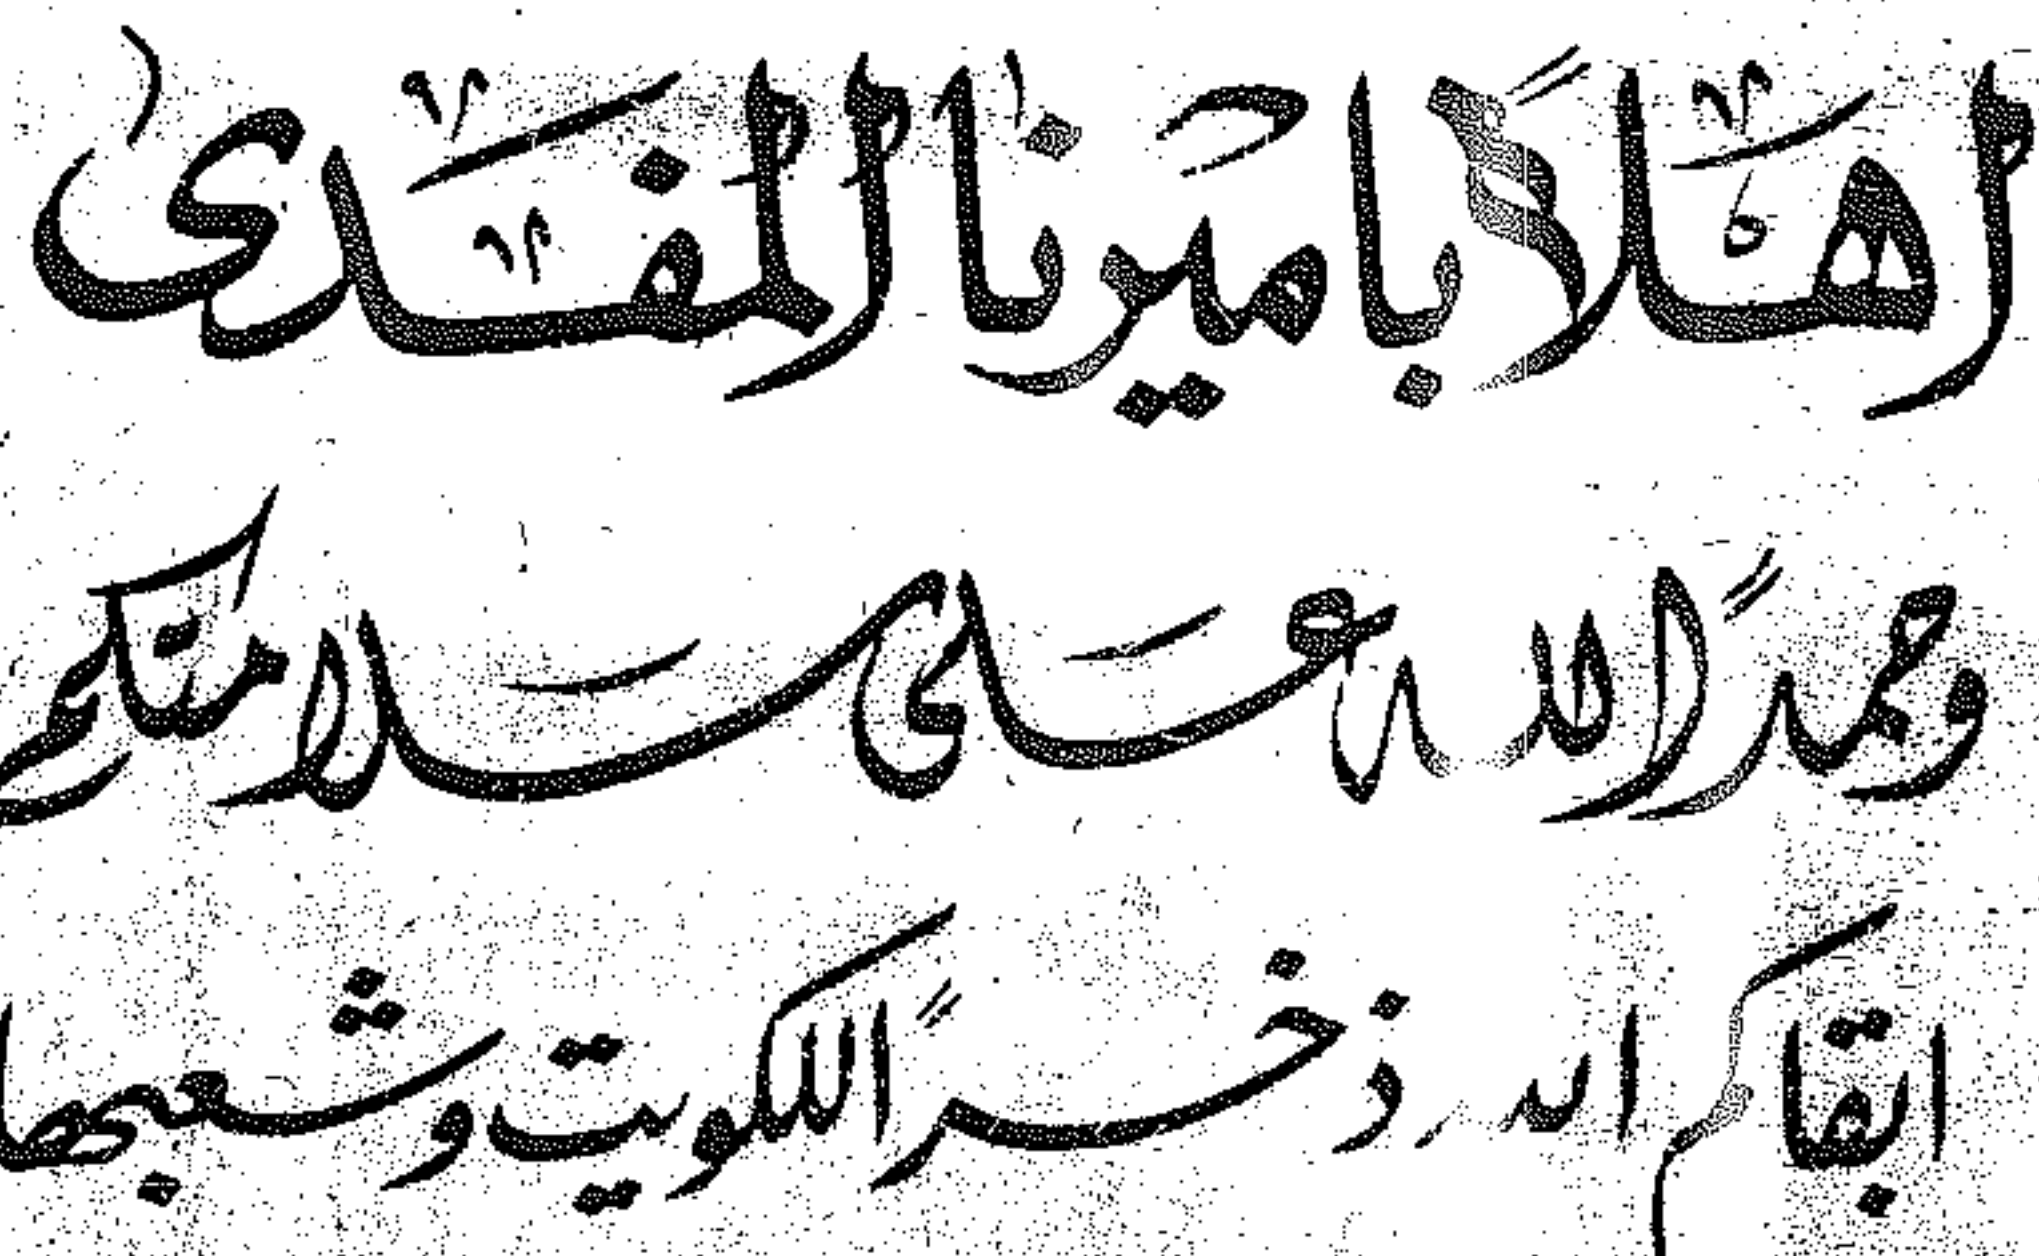 اهلاً باميرنا المفدى
وحمداً لله على سلامتكم
ابقاكم الله ذخراً للكويت وشعبها